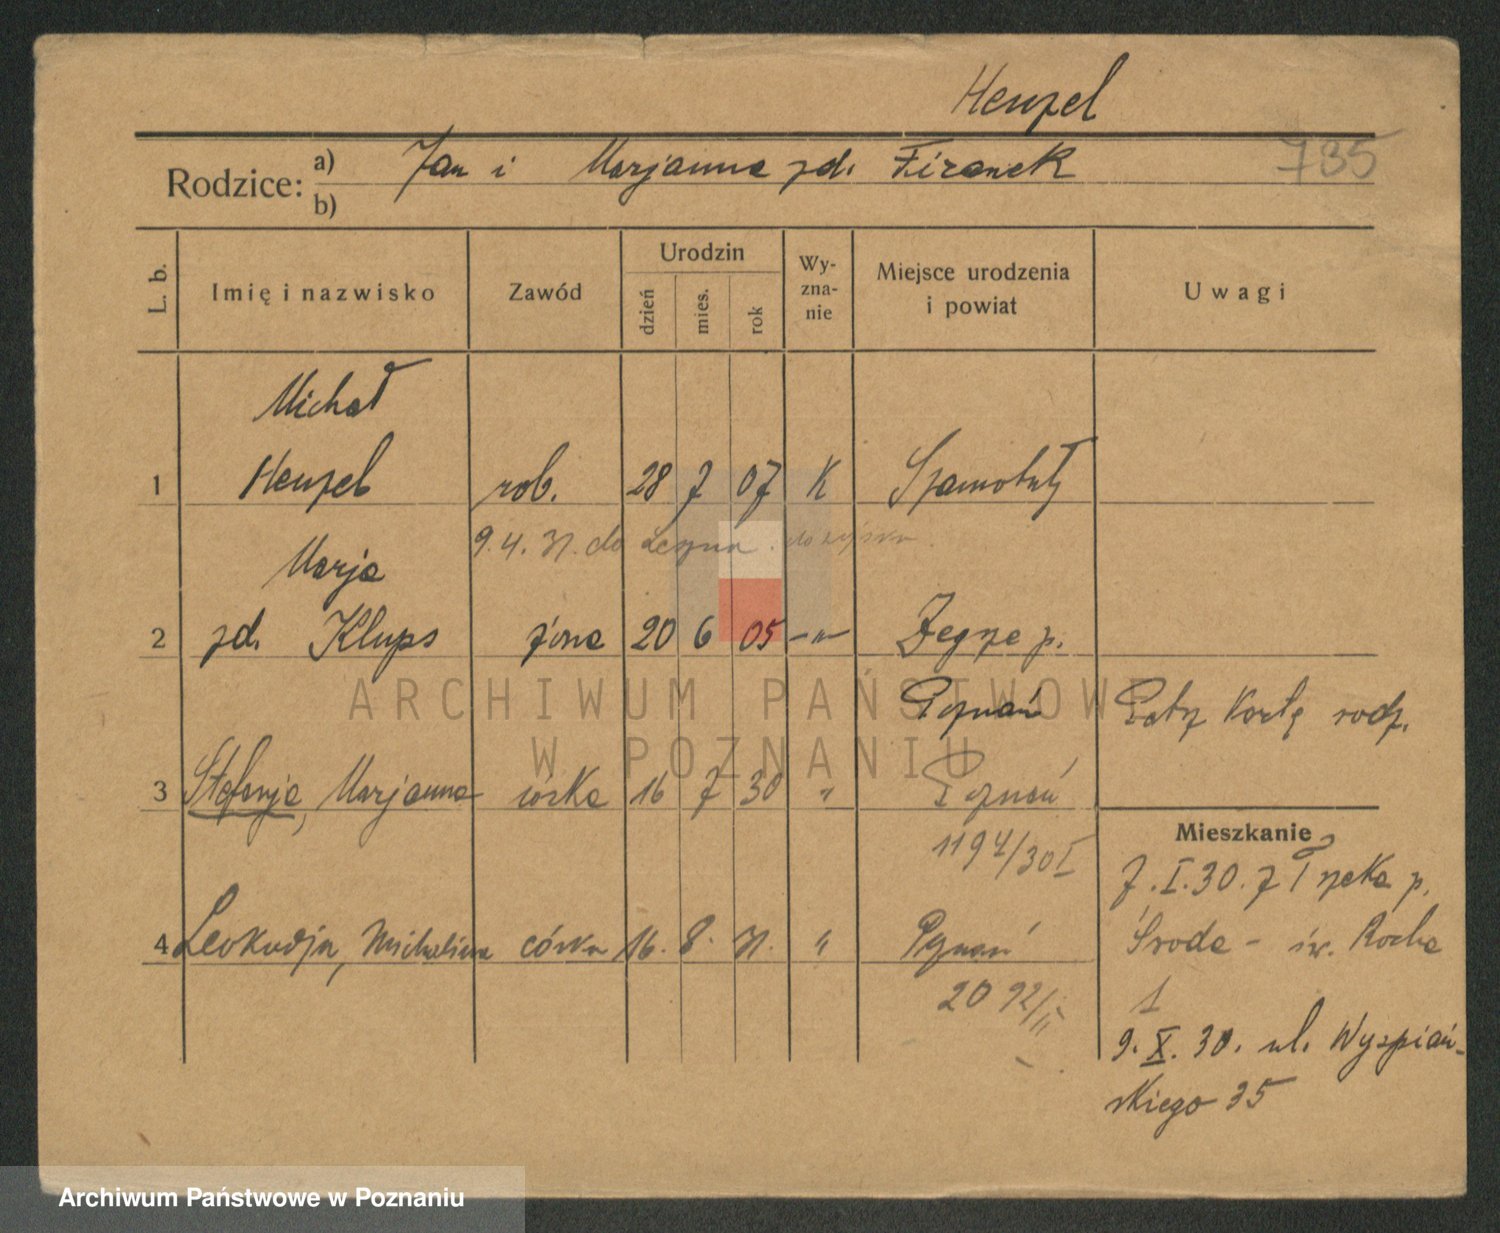 Henzel
735
Rodzice: a) Jan i Marjanna zd. Firanek
b)
L. b.
Imię i nazwisko
Zawód
Urodzin
dzień
mies.
rok
Wy-
zna-
nie
Miejsce urodzenia
i powiat
Uwagi
Michał
1 Henzel rob. 28 7 07 K Szamotuły
9.4.31. do
Marja
2 zd. Klups żona 20 6 05 -"- Zegrze p.
Poznań
Patrz kartę rodz.
3 Stefanja, Marjanna córka 16 7 30 " Poznań
1194/30 I
4 Leokadja, Michalina córka 16. 8. 31. " Poznań
2092/II
Mieszkanie
7.I.30. z p.
Środa - św. Rocha
1
9.X.30. ul. Wyspiań-
skiego 35
ARCHIWUM PAŃSTWOWE
W POZNANIU
Archiwum Państwowe w Poznaniu